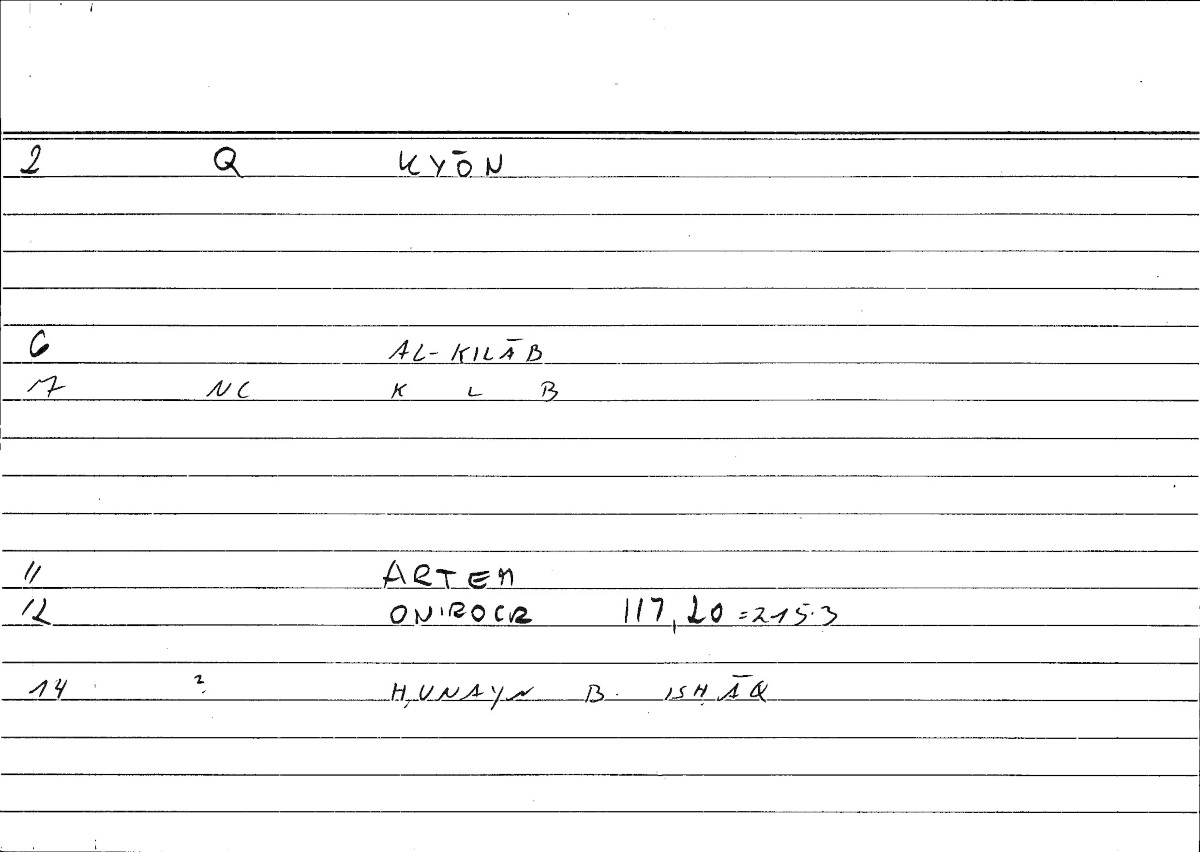 2 Q KYŌN
6 AL-KILĀB
7 NC K L B
11 ARTEM
12 ONIROCR 117,20 =215.3
14 ? ḤUNAYN B. ISḤĀQ